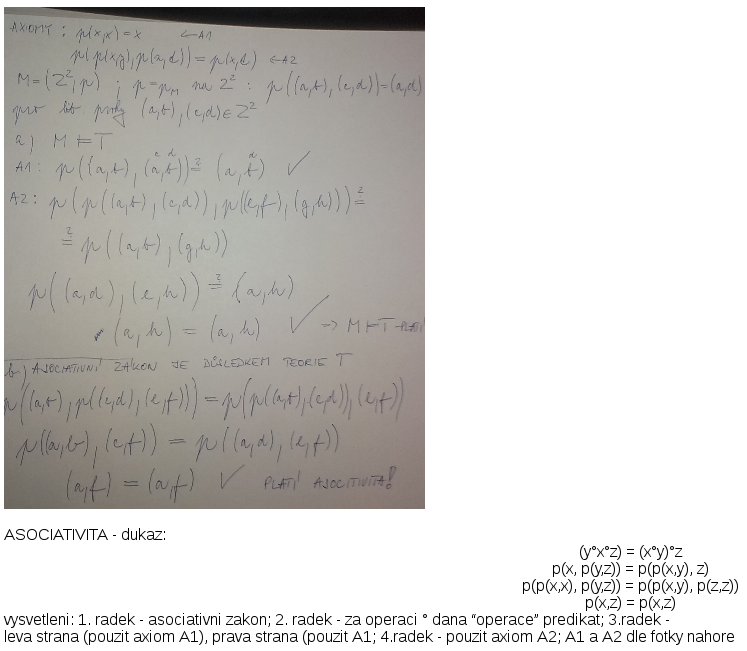 AXIOMY : p(x,x) = x ← A1
p(p(x,y), p(a,d)) = p(x,d) ← A2
M = (Z², p) ; p = pM na Z² : p((a,b), (c,d)) = (a,d)
pro lib. prvky (a,b), (c,d) ∈ Z²
a) M ⊨ T
c d
A1: p((a,b), (a,b)) ≟ (a,b) ✓
A2: p(p((a,b), (c,d)), p((e,f), (g,h))) ≟
≟ p((a,b), (g,h))
p((a,d), (e,h)) ≟ (a,h)
(a,h) = (a,h) ✓ → M ⊨ T PLATÍ
b) ASOCIATIVNÍ ZÁKON JE DŮSLEDKEM TEORIE T
p((a,b), p((c,d), (e,f))) = p(p((a,b), (c,d)), (e,f))
p((a,b), (c,f)) = p((a,d), (e,f))
(a,f) = (a,f) ✓ PLATÍ ASOCITIVITA!
ASOCIATIVITA - dukaz:
(y°x°z) = (x°y)°z
p(x, p(y,z)) = p(p(x,y), z)
p(p(x,x), p(y,z)) = p(p(x,y), p(z,z))
p(x,z) = p(x,z)
vysvetleni: 1. radek - asociativni zakon; 2. radek - za operaci ° dana "operace" predikat; 3.radek -
leva strana (pouzit axiom A1), prava strana (pouzit A1; 4.radek - pouzit axiom A2; A1 a A2 dle fotky nahore